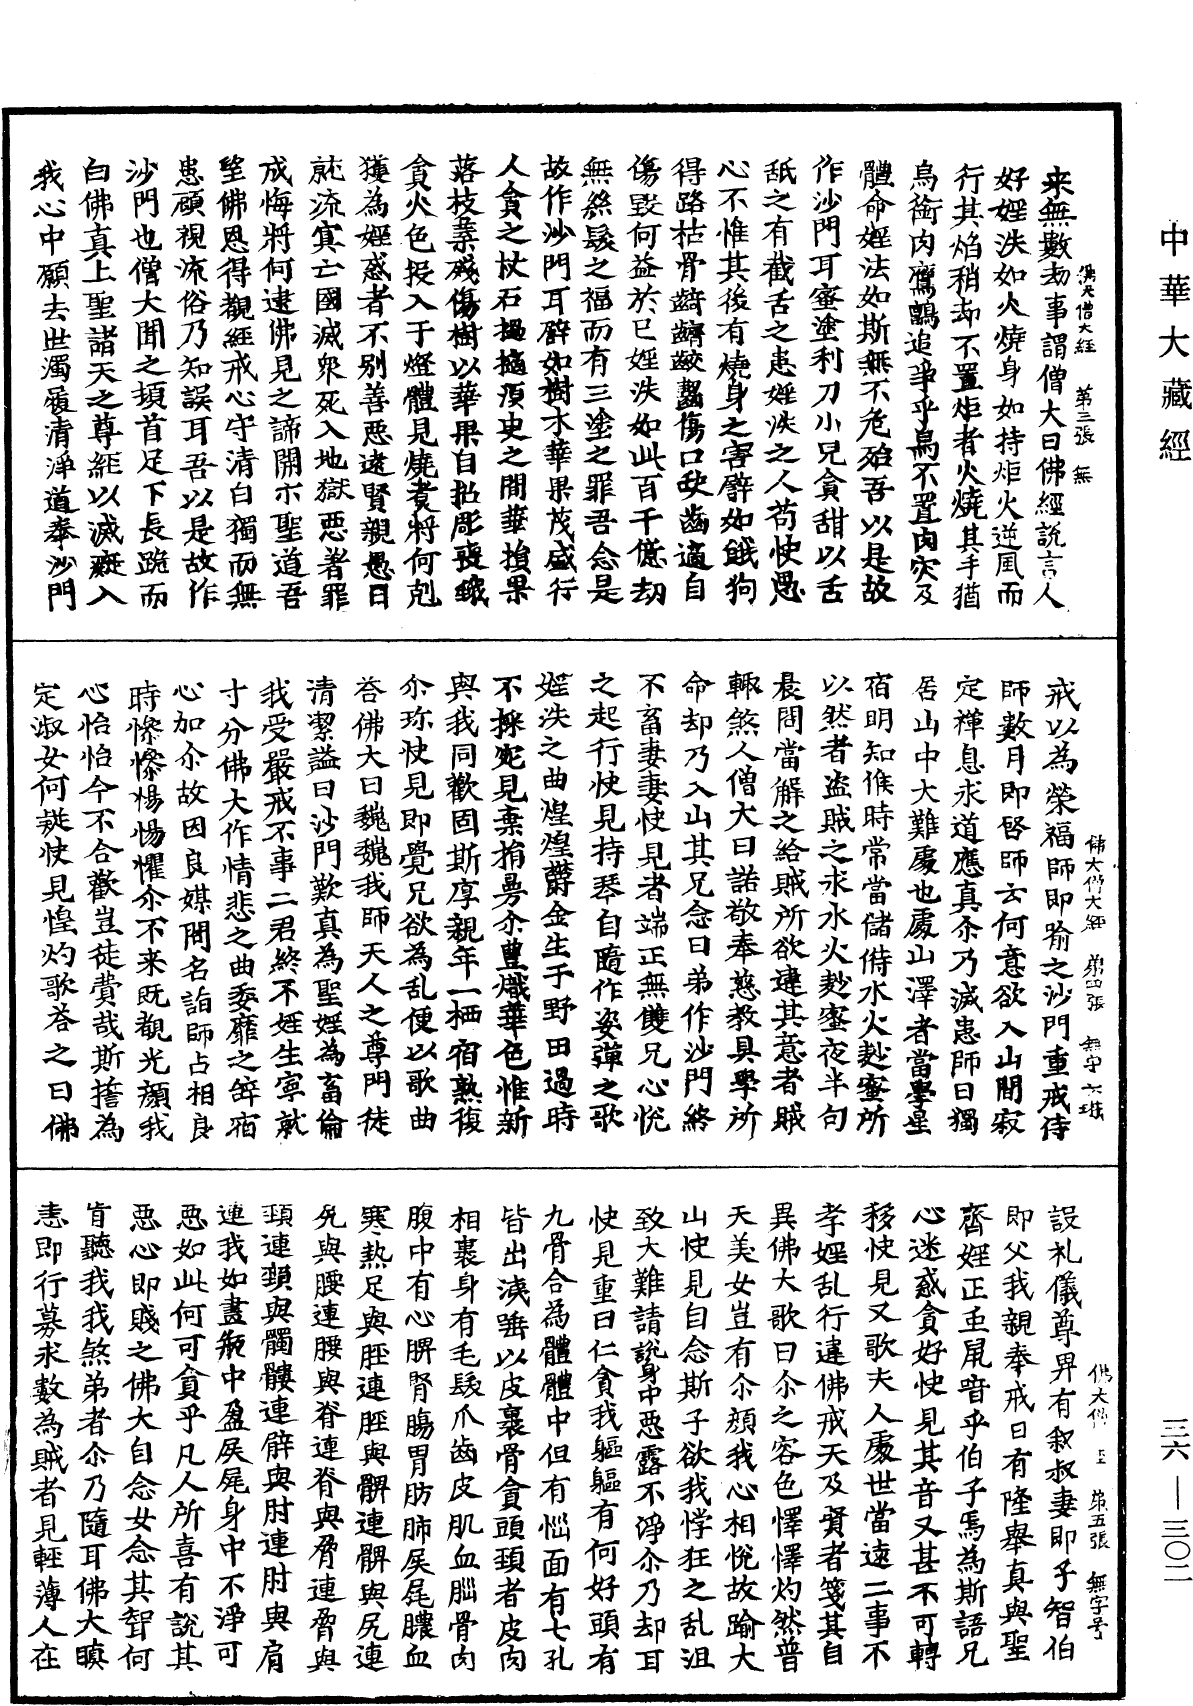 中華大藏經
来無數劫事謂僧大曰佛經說言人
佛大僧大經 第三張 無
好婬泆如火燒身如持炬火逆風而
行其焰稍却不置炬者火燒其手猶
烏銜肉鷹鸇追爭乎烏不置肉灾及
體命婬法如斯無不危殆吾以是故
作沙門耳蜜塗利刀小兒貪甜以舌
舐之有截舌之患婬泆之人苟快愚
心不惟其後有燒身之害譬如餓狗
得路枯骨齮齶齩齧傷口缺齒適自
傷毀何益於己婬泆如此百千億劫
無絲髮之福而有三塗之罪吾念是
故作沙門耳譬如樹木華果茂盛行
人貪之杖石撾擿須臾之間華損果
落枝葉殘傷樹以華果自招彫喪蛾
貪火色投入于燈體見燒煑將何剋
獲為婬惑者不别善惡遠賢親愚日
就流冥亡國滅衆死入地獄惡著罪
成悔將何逮佛見之諦開示聖道吾
望佛恩得觀經戒心守清白獨而無
患顧視流俗乃知誤耳吾以是故作
沙門也僧大聞之頭首足下長跪而
白佛真上聖諸天之尊經以滅癡入
我心中願去世濁履清淨道奉沙門
戒以為榮福師即喻之沙門重戒侍
佛大僧大經 第四張 無字号
師數月即啓師云何意欲入山閒寂
定禪息求道應真尒乃滅患師曰獨
居山中大難處也處山澤者當學星
宿明知候時常當儲偫水火麨蜜所
以然者盗賊之求水火麨蜜夜半旬
晨問當解之給賊所欲違其意者賊
輒煞人僧大曰諾敬奉慈教具學所
命却乃入山其兄念曰弟作沙門終
不畜妻妻快見者端正無雙兄心悅
之起行快見持琴自隨作姿彈之歌
婬泆之曲煌煌欝金生于野田過時
不採宛見棄捐曼尒豊熾華色惟新
與我同歡固斯厚親年一栖宿熟復
尒珎快見即覺兄欲為乱便以歌曲
荅佛大曰魏魏我師天人之尊門徒
清潔謚曰沙門歎真為聖婬為畜倫
我受嚴戒不事二君終不婬生寧就
寸分佛大作情悲之曲委靡之辤宿
心加尒故因良媒問名詣師占相良
時慘慘惕惕懼尒不来既覩光顔我
心怡怡今不合歡豈徒費哉斯擔為
定淑女何疑快見惶灼歌荅之曰佛
設礼儀尊卑有叙叔妻即子智伯
佛大僧 經 第五張 無字号
即父我親奉戒曰有隆舉真與聖
齊婬正虫䑕啻乎伯子焉為斯語兄
心迷惑貪好快見其音又甚不可轉
移快見又歌夫人處世當遠二事不
孝婬乱行違佛戒天及賢者箋其自
異佛大歌曰尒之容色懌懌灼然普
天美女豈有尒顔我心相悅故踰大
山快見自念斯子欲我悖狂之乱沮
致大難請說身中惡露不淨尒乃却耳
快見重曰仁貪我軀軀有何好頭有
九骨合為體體中但有惱面有七孔
皆出洟唾以皮裹骨貪頭頚者皮肉
相裹身有毛髮爪齒皮肌血腦骨肉
腹中有心脾腎腸胃肪肺屎尿膿血
寒熱足與脛連脛與髀連髀與尻連
尻與腰連腰與脊連脊與脅連脅與
頚連頚與髑髏連臂與肘連肘與肩
連我如畫瓶中盈屎尿身中不淨可
惡如此何可貪乎凡人所喜有說其
惡心即賤之佛大自念女念其聟何
肯聽我我煞弟者尒乃隨耳佛大瞋
恚即行募求數為賊者見輕薄人在
三六—三〇二